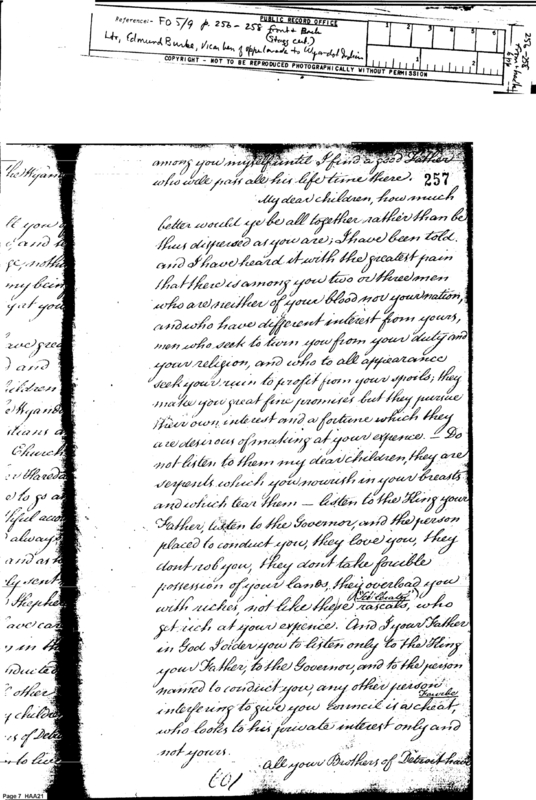 Reference:- FO 5/9 p. 256 - 258 front & Back
Ltr, Edmund Burke, Vicar Gen of upper Canada to Wyandot Indians
PUBLIC RECORD OFFICE
1 2 3 4 5 6
1 2
COPYRIGHT - NOT TO BE REPRODUCED PHOTOGRAPHICALLY WITHOUT PERMISSION
256-258
257
among you myself until I find a good Father
who will pass all his life time there.
My dear children, how much
better would ye be all together rather than be
thus dispersed as you are; I have been told
and I have heard it with the greatest pain
that there is among you two or three men
who are neither of your blood nor your nation,
and who have different interest from yours,
men who seek to turn you from your duty and
your religion, and who to all appearance
seek your ruin to profit from your spoils; they
make you great fine promises but they pursue
their own interest and a fortune which they
are desirous of making at your expence. - Do
not listen to them my dear children, they are
serpents which you nourish in your breasts
and which tear them - listen to the King your
Father, listen to the Governor, and the person
placed to conduct you, they love you, they
dont rob you, they dont take forcible
possession of your lands, they overload you
with riches, not like these rascals, who
get rich at your expence. And I your Father
in God I order you to listen only to the King
your Father, to the Governor, and to the person
named to conduct you, any other person
interfering to give you council is a cheat,
who looks to his private interest only and
not yours.
All your Brothers of Detroit have
Page 7 HAA21